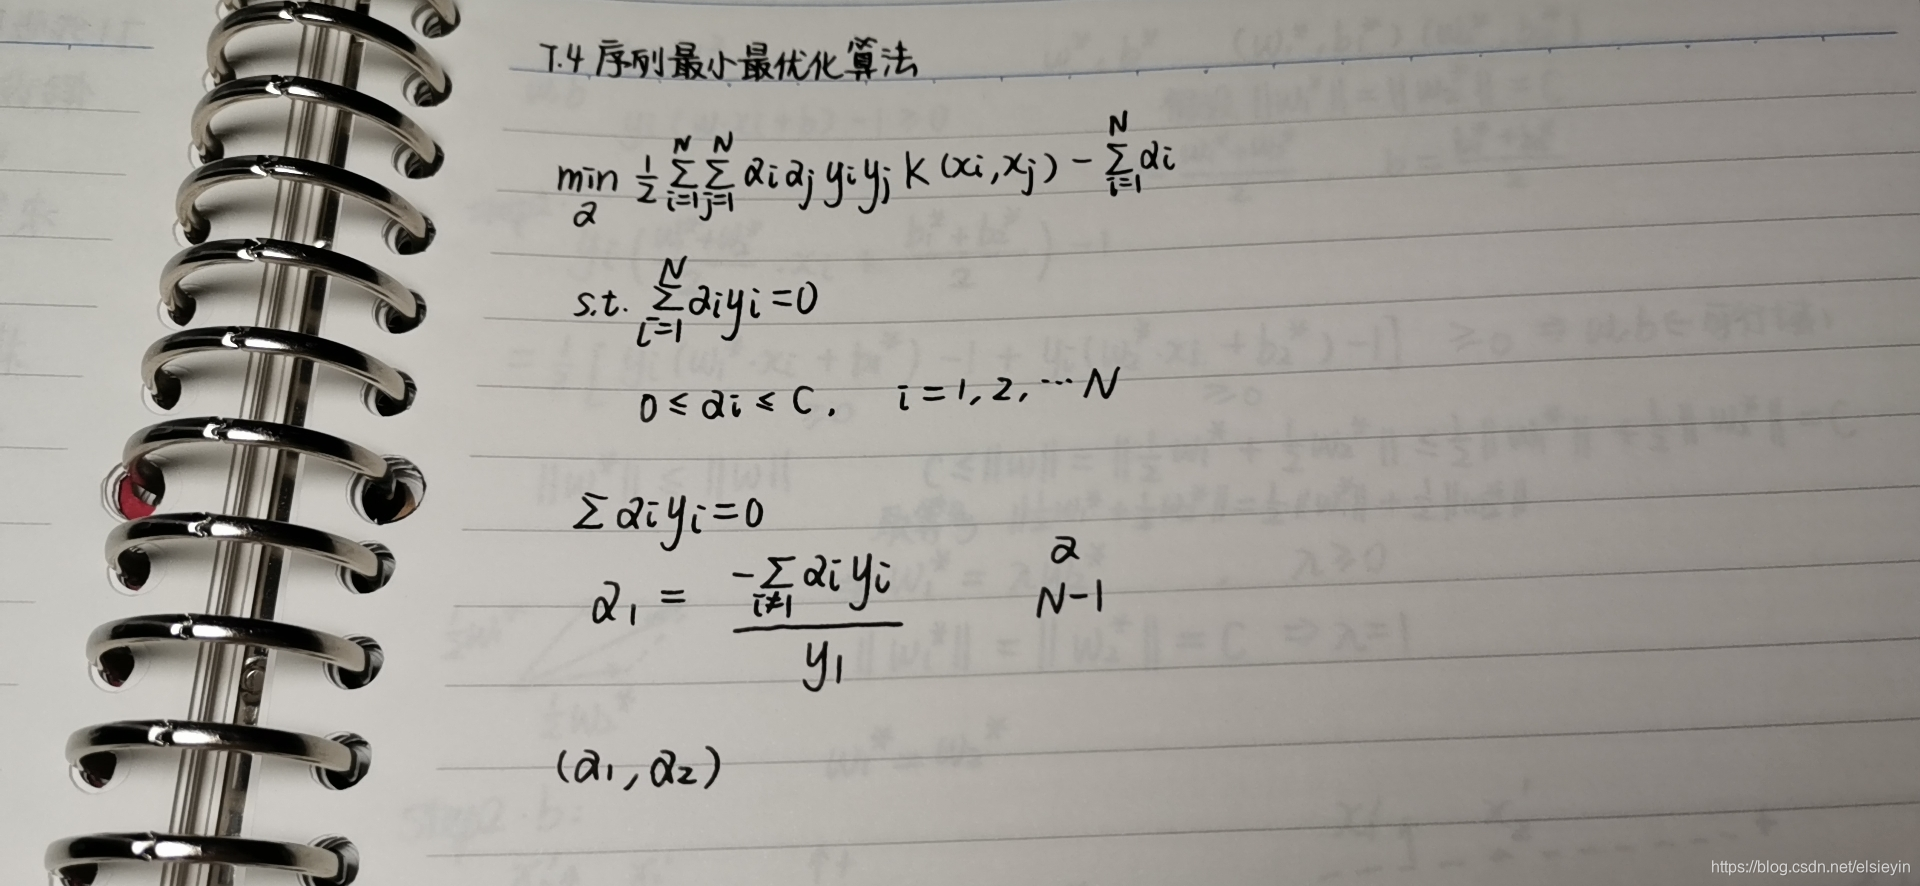 7.4 序列最小最优化算法
min_α 1/2 Σ_{i=1}^{N} Σ_{j=1}^{N} αi αj yi yj K(xi, xj) − Σ_{i=1}^{N} αi
s.t. Σ_{i=1}^{N} αi yi = 0
0 ≤ αi ≤ C, i = 1, 2, ⋯ N
Σ αi yi = 0
α1 = (−Σ_{i≠1} αi yi) / y1
α
N−1
(α1, α2)
https://blog.csdn.net/elsieyin